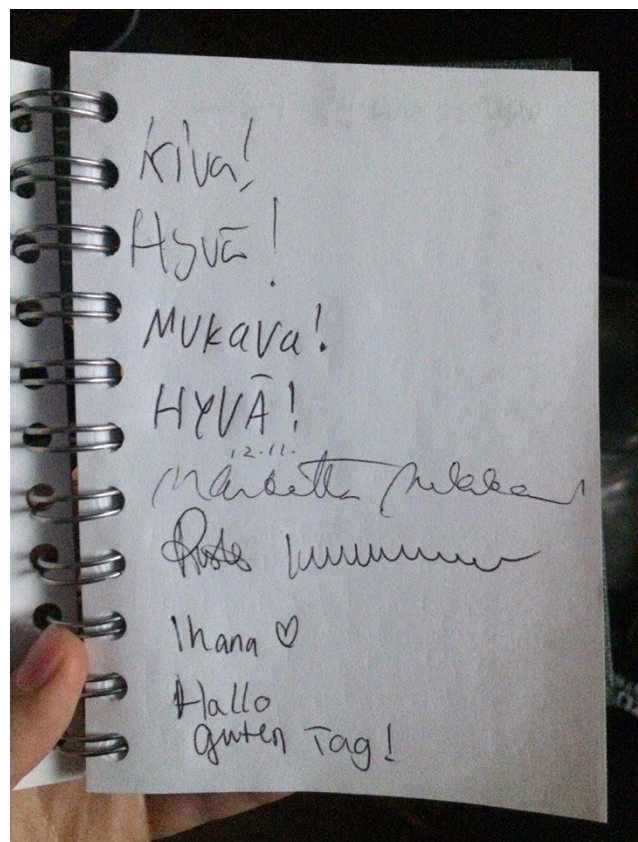 Kiva!
Hyvä!
Mukava!
HYVÄ!
12.11.
Ihana ♡
Hallo
guten Tag!